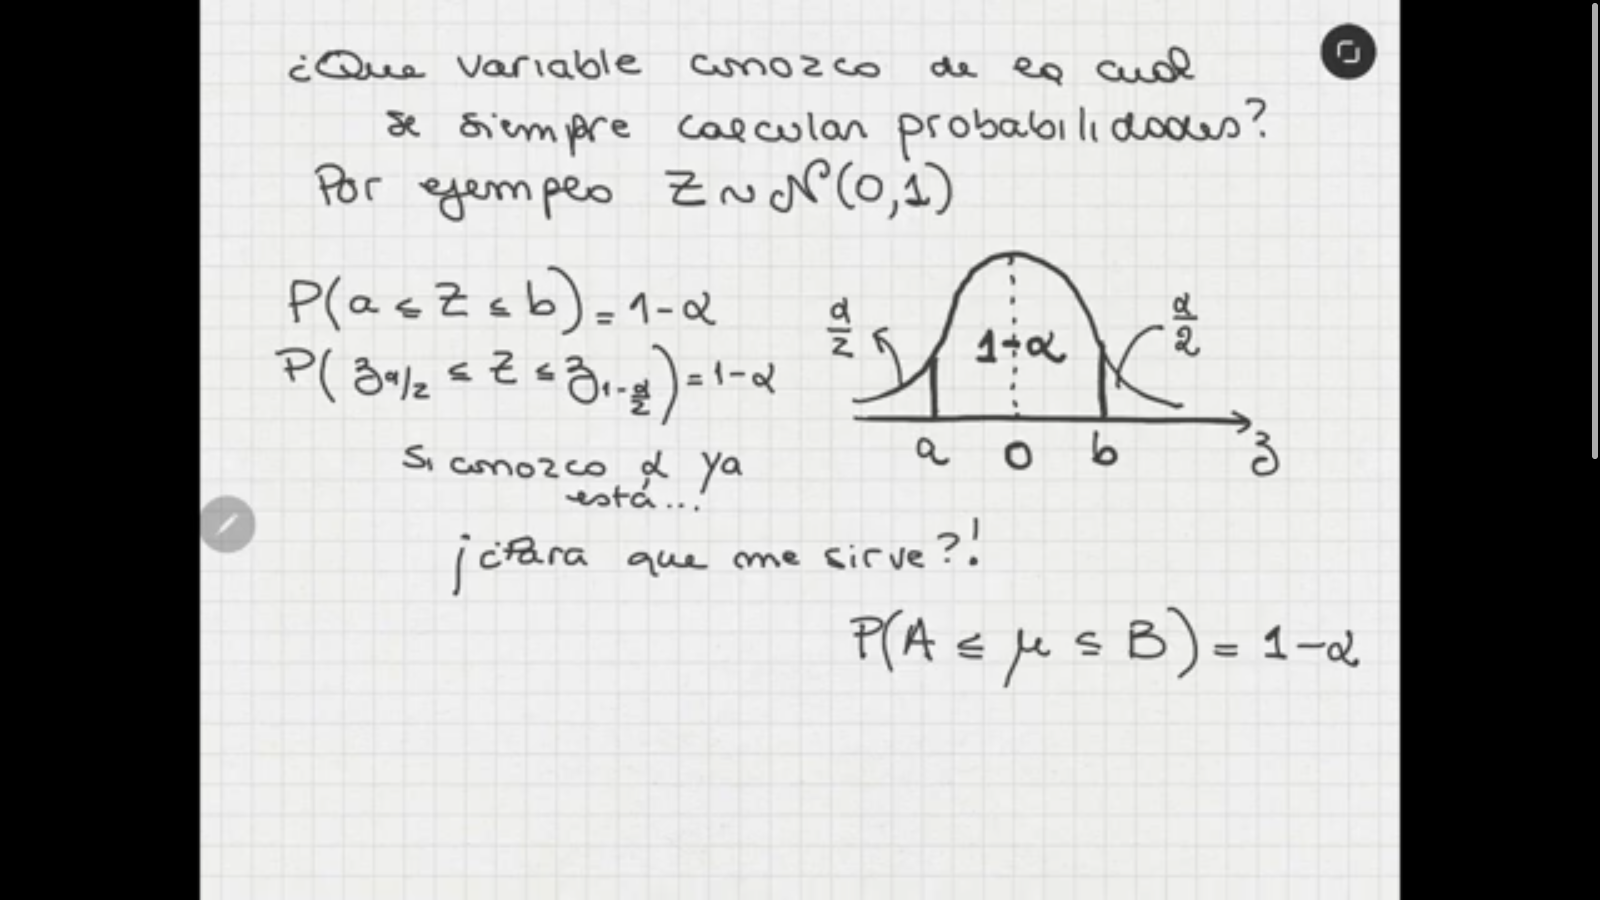 ¿Que variable conozco de la cual
se siempre calcular probabilidades?
Por ejemplo Z ~ N(0,1)
P(a ≤ Z ≤ b) = 1-α
P(z_{α/2} ≤ Z ≤ z_{1-α/2}) = 1-α
α/2
1-α
α/2
a 0 b z
Si conozco α ya
está...
¡¿Para que me sirve?!
P(A ≤ μ ≤ B) = 1-α